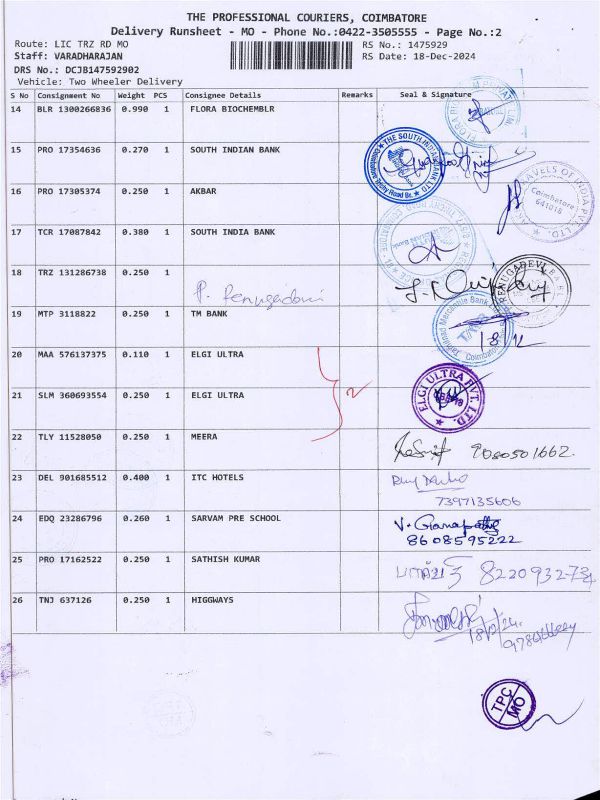 THE PROFESSIONAL COURIERS, COIMBATORE
Delivery Runsheet - MO - Phone No.:0422-3505555 - Page No.:2
Route: LIC TRZ RD MO RS No.: 1475929
Staff: VARADHARAJAN RS Date: 18-Dec-2024
DRS No.: DCJB147592902
Vehicle: Two Wheeler Delivery
S No Consignment No Weight PCS Consignee Details Remarks Seal & Signature
14 BLR 1300266836 0.990 1 FLORA BIOCHEMBLR
15 PRO 17354636 0.270 1 SOUTH INDIAN BANK
THE SOUTH INDIAN BANK LTD
16 PRO 17305374 0.250 1 AKBAR
Coimbatore
641018
17 TCR 17087842 0.380 1 SOUTH INDIA BANK
18 TRZ 131286738 0.250 1
P. Renugadevi
RENUGADEVI
19 MTP 3118822 0.250 1 TM BANK
Tamilnad Mercantile Bank
Coimbatore
18/12
20 MAA 576137375 0.110 1 ELGI ULTRA
2
21 SLM 360693554 0.250 1 ELGI ULTRA
ELGI ULTRA PVT. LTD.
22 TLY 11528050 0.250 1 MEERA
9080501662.
23 DEL 901685512 0.400 1 ITC HOTELS
7397135606
24 EDQ 23286796 0.260 1 SARVAM PRE SCHOOL
V. Ganapathy
8608595222
25 PRO 17162522 0.250 1 SATHISH KUMAR
26 TNJ 637126 0.250 1 HIGGWAYS
TPC
MO